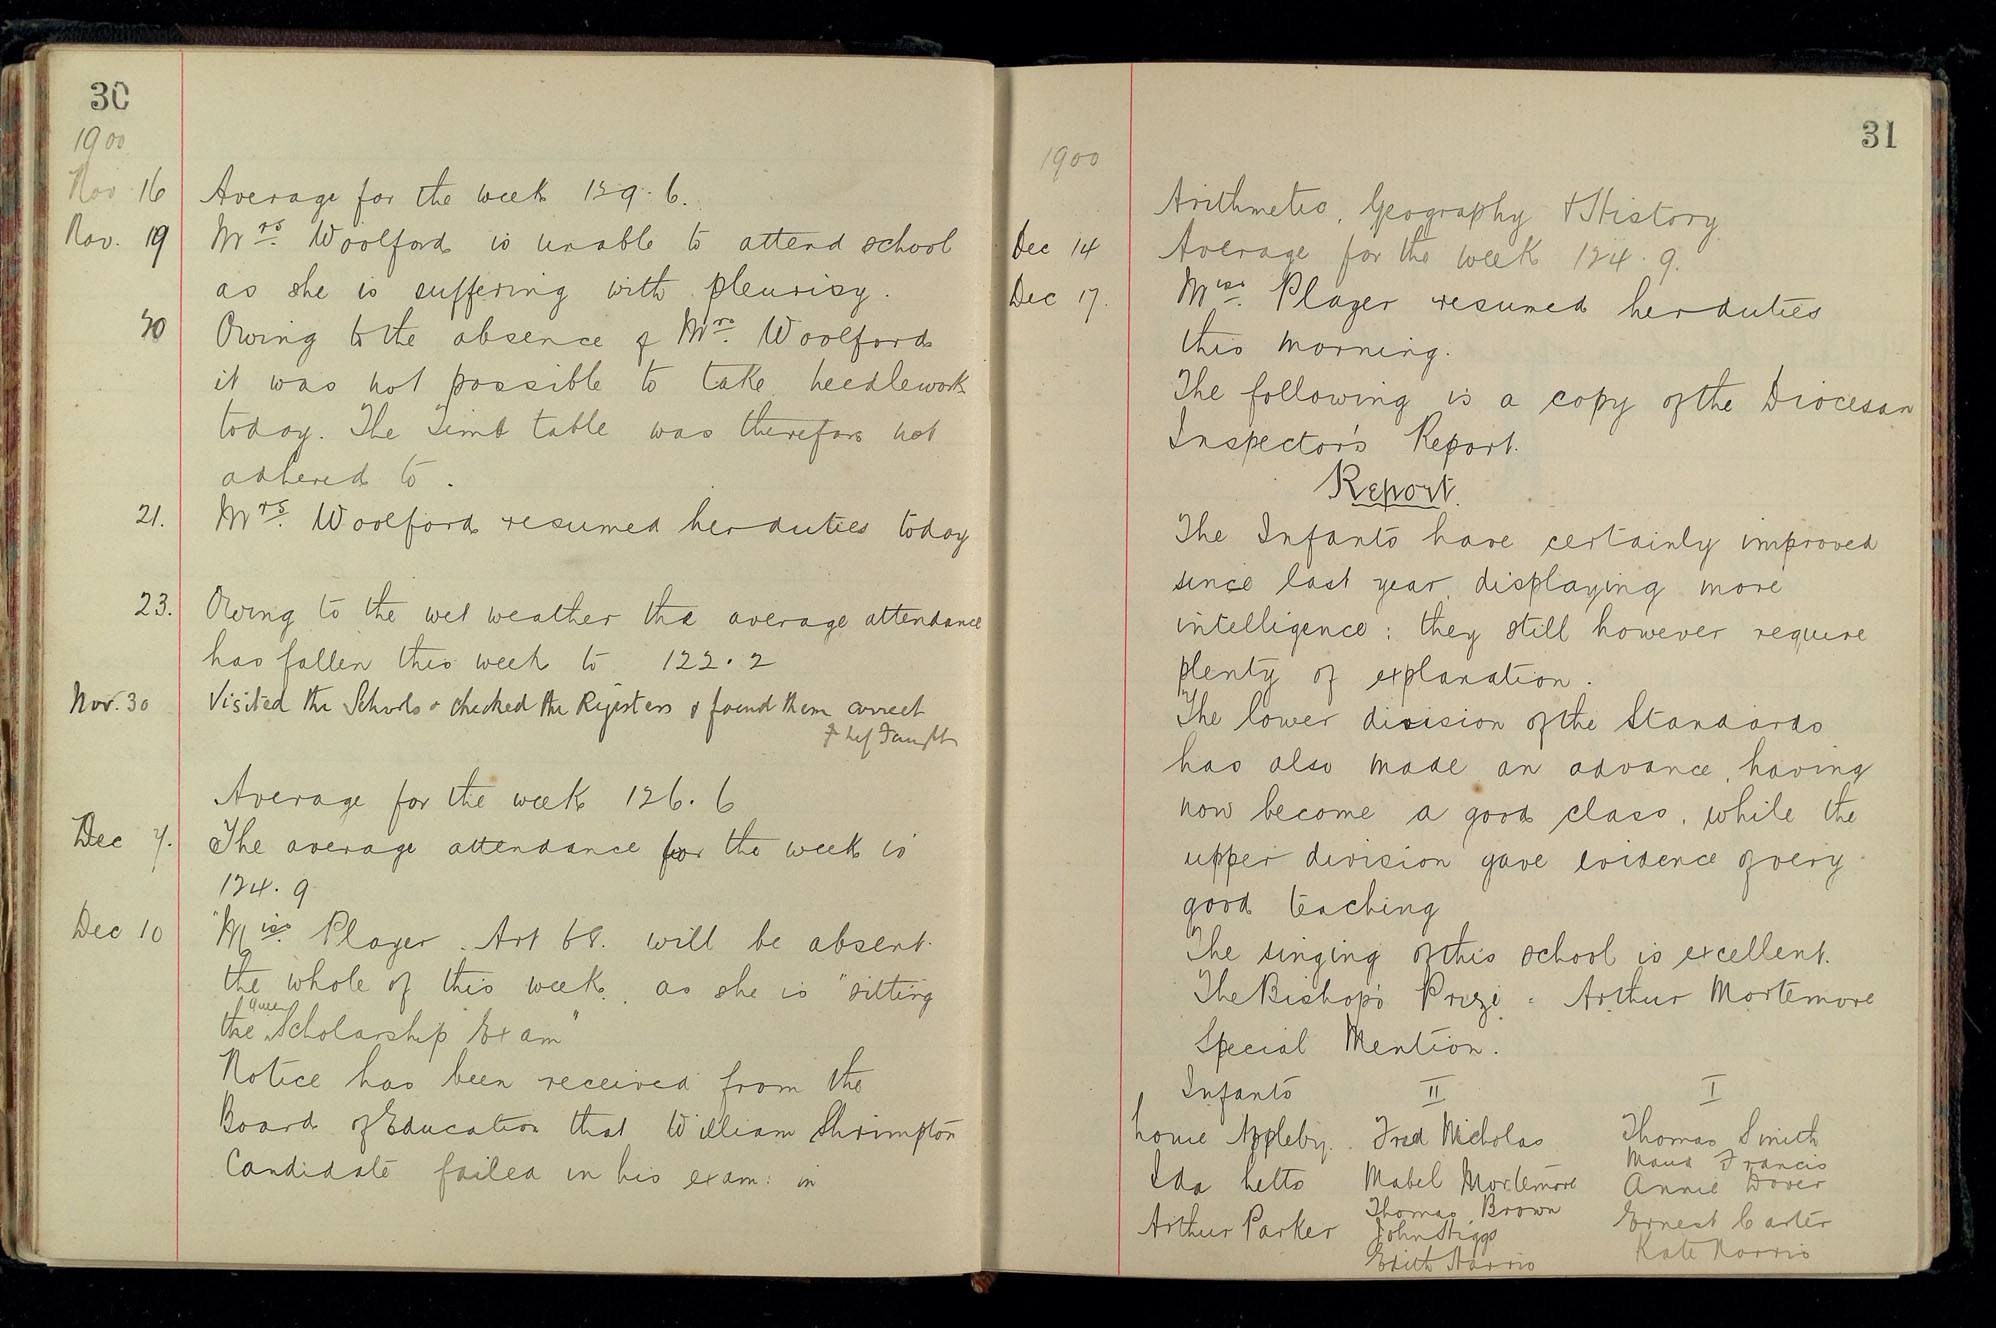 30
1900
Nov 16 Average for the week 129.6.
Nov. 19 Mrs. Woolford is unable to attend school
as she is suffering with pleurisy.
20 Owing to the absence of Mrs. Woolford
it was not possible to take needlework
today. The Time table was therefore not
adhered to.
21. Mrs. Woolford resumed her duties today
23. Owing to the wet weather the average attendance
has fallen this week to 122.2
Nov. 30 Visited the Schools & checked the Registers & found them correct
Average for the week 126.6
Dec 7. The average attendance for the week is
124.9
Dec 10 Miss. Player. Art 68. will be absent
the whole of this week, as she is "sitting
the Queen Scholarship Exam"
Notice has been received from the
Board of Education that William Shrimpton
Candidate failed in his exam: in
31
1900
Arithmetic, Geography & History
Dec 14 Average for the week 124.9.
Dec 17. Miss. Player resumed her duties
this morning.
The following is a copy of the Diocesan
Inspector's Report.
Report.
The Infants have certainly improved
since last year, displaying more
intelligence: they still however require
plenty of explanation.
The lower division of the Standards
has also made an advance, having
now become a good class, while the
upper division gave evidence of very
good teaching
The singing of this school is excellent.
The Bishop's Prize = Arthur Mortemore
Special Mention.
Infants II I
Appleby. Fred Nicholas Thomas Smith
Maud Francis
Ida Mabel Mortemore Annie Dover
Thomas Brown
Arthur Parker John Higgs Ernest Carter
Edith Harris Kate Norris